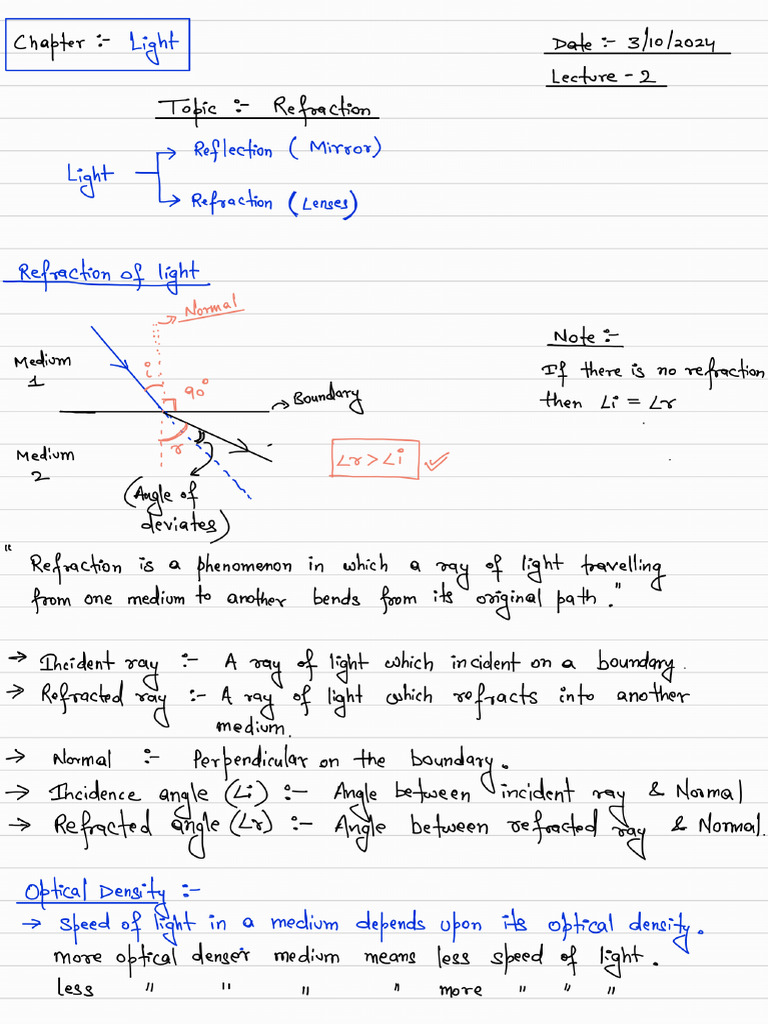 Chapter :- Light
Date :- 3/10/2024
Lecture - 2
Topic :- Refraction
Light
Reflection ( Mirror)
Refraction (Lenses)
Refraction of light
Normal
Medium
1
i
90°
Boundary
Medium
2
r
(Angle of
deviates)
∠r > ∠i ✓
Note :-
If there is no refraction
then ∠i = ∠r
" Refraction is a phenomenon in which a ray of light travelling
from one medium to another bends from its original path."
→ Incident ray :- A ray of light which incident on a boundary.
→ Refracted ray :- A ray of light which refracts into another
medium.
→ Normal :- Perpendicular on the boundary.
→ Incidence angle (∠i) :- Angle between incident ray & Normal
→ Refracted angle (∠r) :- Angle between refracted ray & Normal.
Optical Density :-
→ speed of light in a medium depends upon its optical density.
more optical denser medium means less speed of light.
less " " " " more " " "